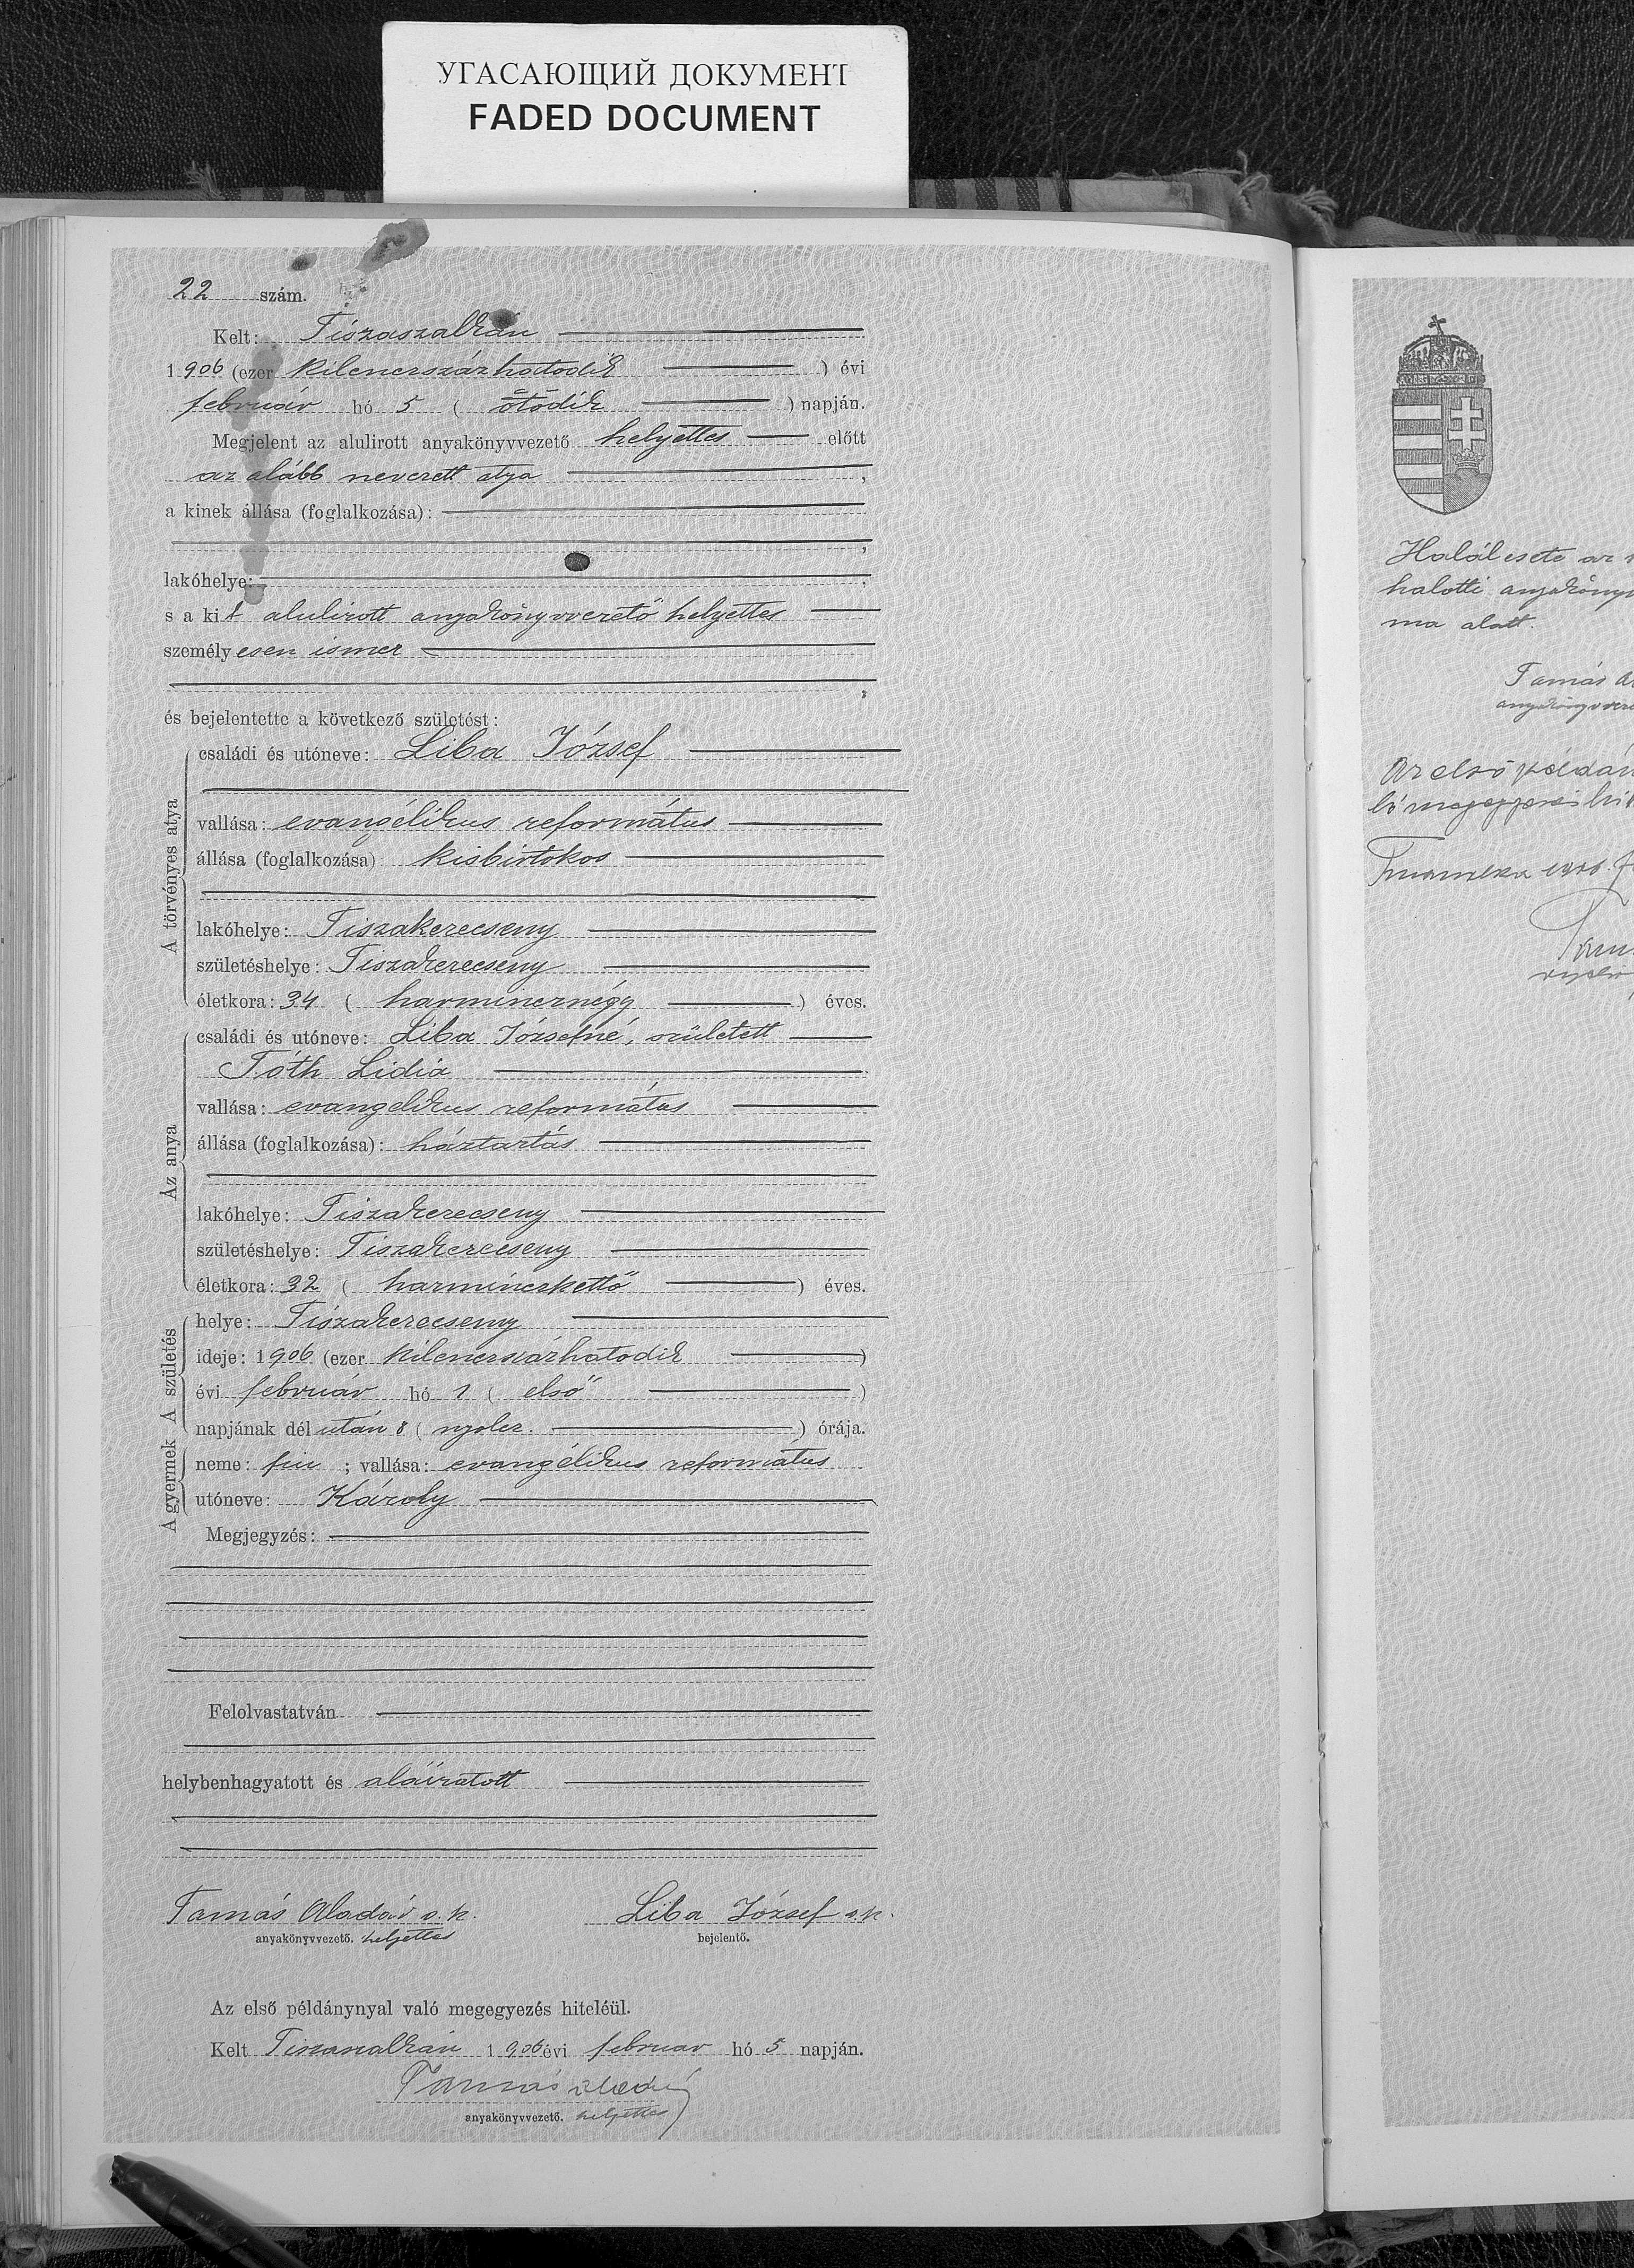 УГАСАЮЩИЙ ДОКУМЕНТ
FADED DOCUMENT
22 szám.
Kelt: Tiszaszalkán
1906 (ezer kilenczszázhatodik ) évi
február hó 5 ( ötödik ) napján.
Megjelent az alulirott anyakönyvvezető helyettes előtt
az alább nevezett atya ,
a kinek állása (foglalkozása):
,
lakóhelye: ,
s a kit alulirott anyakönyvvezető helyettes
személyesen ismer
,
és bejelentette a következő születést:
A törvényes atya
családi és utóneve: Liba József
vallása: evangélikus református
állása (foglalkozása): kisbirtokos
lakóhelye: Tiszakerecseny
születéshelye: Tiszakerecseny
életkora: 34 ( harmincznégy ) éves.
Az anya
családi és utóneve: Liba Józsefné, született
Tóth Lidia
vallása: evangelikus református
állása (foglalkozása): háztartás
lakóhelye: Tiszakerecseny
születéshelye: Tiszakerecseny
életkora: 32 ( harminczkettő ) éves.
A születés
helye: Tiszakerecseny
ideje: 1906 (ezer kilenczszázhatodik )
évi február hó 1 ( első )
napjának dél után 8 ( nyolcz. ) órája.
A gyermek
neme: fiu ; vallása: evangélikus református
utóneve: Károly
Megjegyzés:
Felolvastatván
helybenhagyatott és aláiratott
Tamás Aladár s.k. Liba József s.k.
anyakönyvvezető. helyettes bejelentő.
Az első példánynyal való megegyezés hiteléül.
Kelt Tiszaszalkán 1906 évi február hó 5 napján.
Tamás Aladár
anyakönyvvezető. helyettes
Halálesete az
halotti
ma alatt.
Tamás
Az első
1906.